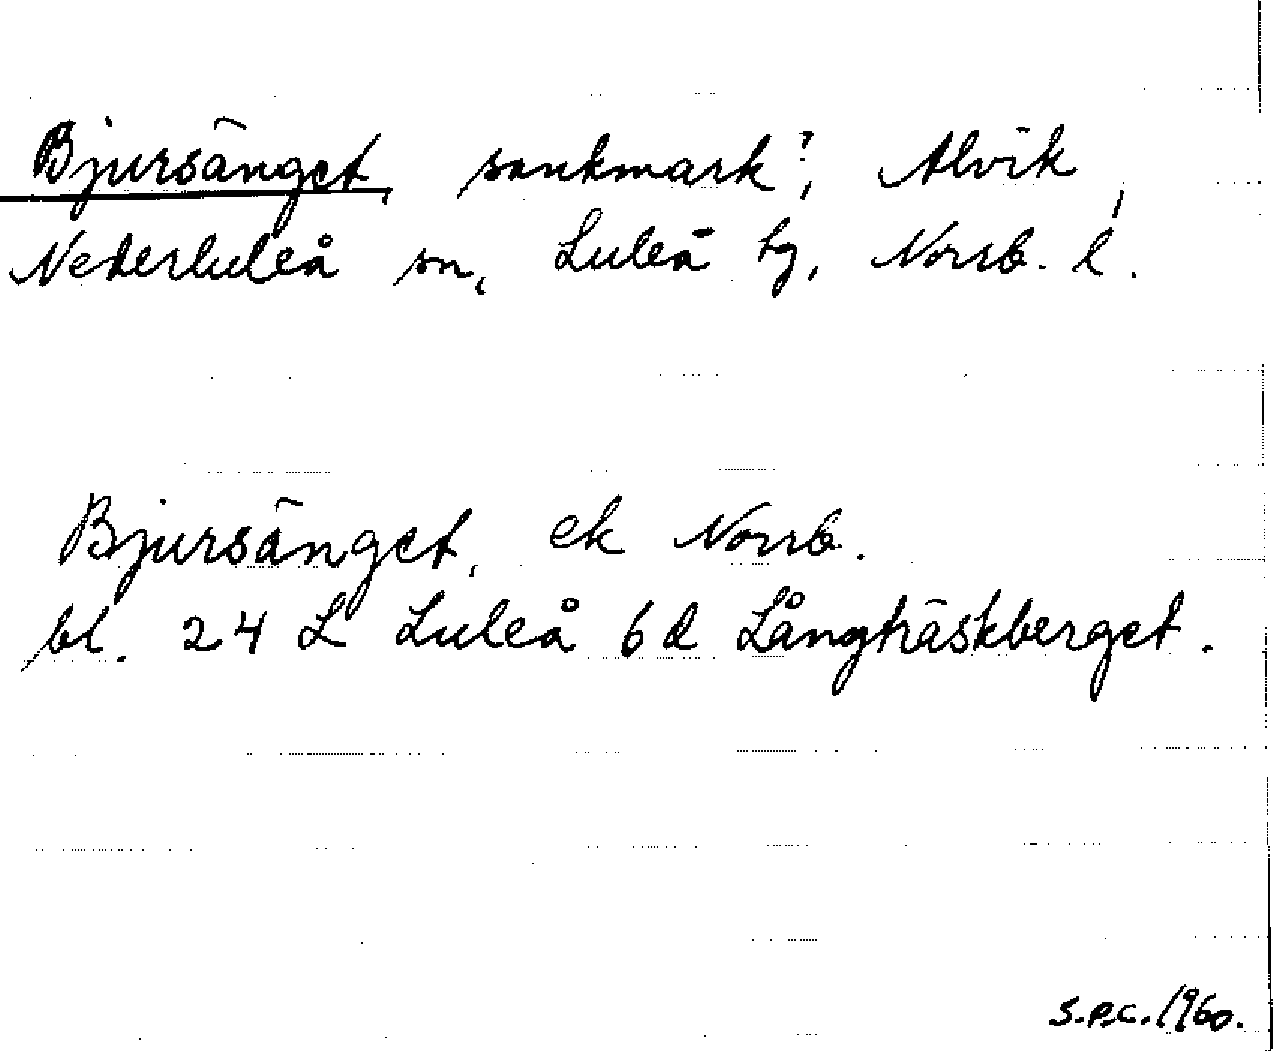 Bjursänget, sankmark?, Alvik,
Nederluleå sn, Luleå tg, Norrb. l.
Bjursänget, ek Norrb.
bl. 24 L Luleå 6d Långträskberget.
S.P.C. 1960.